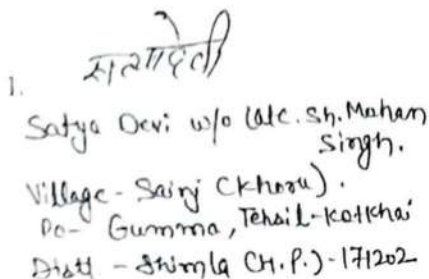 सत्यादेवी
1.
Satya Devi w/o late. Sh. Mohan
Singh.
Village - Sainj (Khoru).
Po- Gumma, Tehsil-Kotkhai
Distt - Shimla (H.P.) - 171202